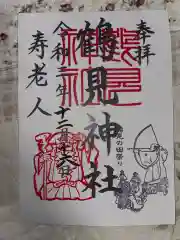 奉拝
鶴見神社
令和二年十二月十六日
寿老人
の田祭り